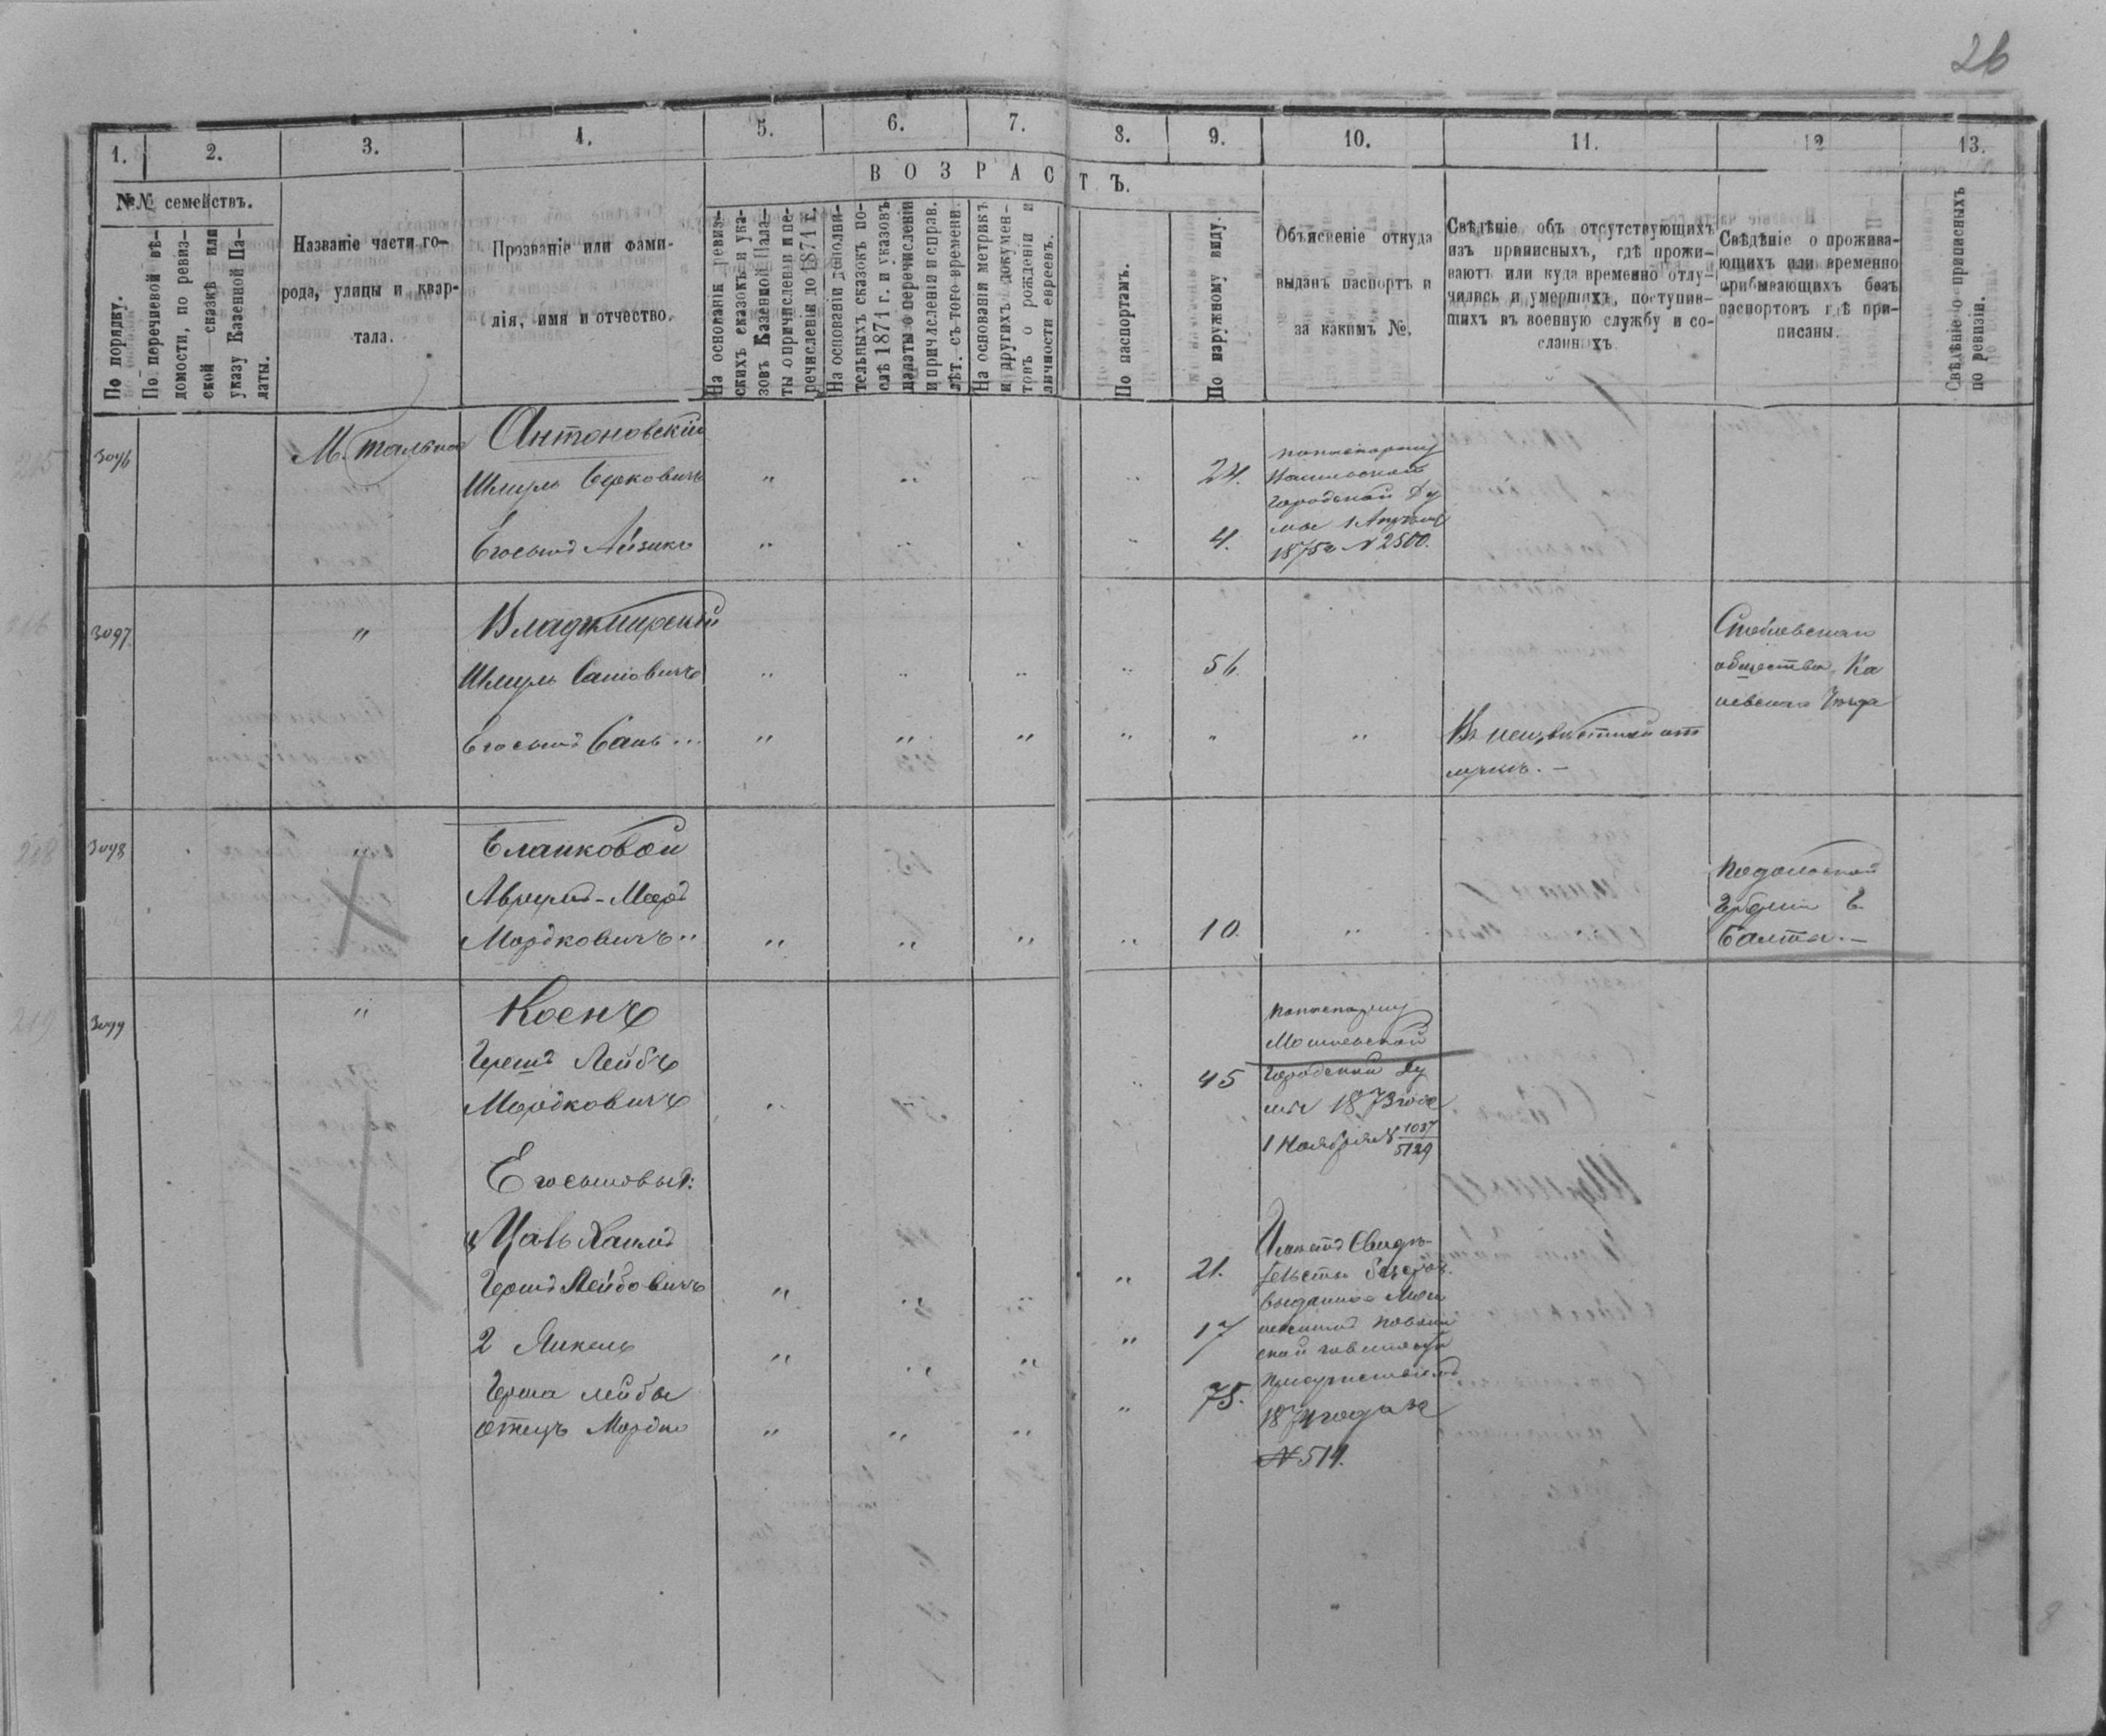 26
1.
2.
3.
4.
5.
6.
7.
8.
9.
10.
11.
12
13.
№№ семействъ.
По порядку.
По перечневой вѣ-
домости, по ревиз-
ской сказкѣ или
указу Казенной Па-
латы.
Названіе части го-
рода, улицы и квар-
тала.
Прозваніе или фами-
лія, имя и отчество.
ВОЗРАСТЪ.
На основаніи ревиз-
скихъ сказокъ и ука-
зовъ Казенной Пала-
ты о причисленіи и пе-
речисленіи до 1871 г.
На основаніи дополни-
тельныхъ сказокъ по-
слѣ 1871 г. и указовъ
палаты о перечисленіи
и причисленіи и справ.
лѣт. съ того времени.
На основаніи метрикъ
и другихъ докумен-
товъ о рожденіи и
личности евреевъ.
По паспортамъ.
По наружному виду.
Объясненіе откуда
выданъ паспортъ и
за какимъ №.
Свѣдѣніе объ отсутствующихъ
изъ приписныхъ, гдѣ прожи-
ваютъ или куда временно отлу-
чились и умершихъ, поступив-
шихъ въ военную службу и со-
сланныхъ.
Свѣдѣніе о прожива-
ющихъ или временно
прибывающихъ безъ
паспортовъ гдѣ при-
писаны.
Свѣдѣніе о приписныхъ
по ревизіи.
215
3096
М. Тальное
Антоновскій
Шмуль Берковичъ
24.
Его сынъ Айзикъ
4.
по паспорту
Городской Ду
мы 1 Апрѣля
1875 г № 2500.
216
3097
"
Владимирский
Шмуль Сановичъ
56
Его сынъ Сань
Въ неизвѣстной от
лучкѣ. —
Стеблевскаго
общества, Ка
невскаго Уѣзда
218
3098
"
Еланковой
Аврумъ-Мееръ
Мордковичъ
10.
Подольской
Губерніи Г.
Балты. —
219
3099
"
Коенъ
Гершъ Лейбъ
Мордковичъ
45
по паспорту
Городской Ду
мы 1873 года
1 Ноября № 1037
5129
Его сыновья:
1, Цаль Хаимъ
Гершъ Лейбовичъ
21.
2 Янкель
17
Герша Лейбы
отецъ Мордко
75.
выданное
присутствіемъ
1874 года за
№ 514.